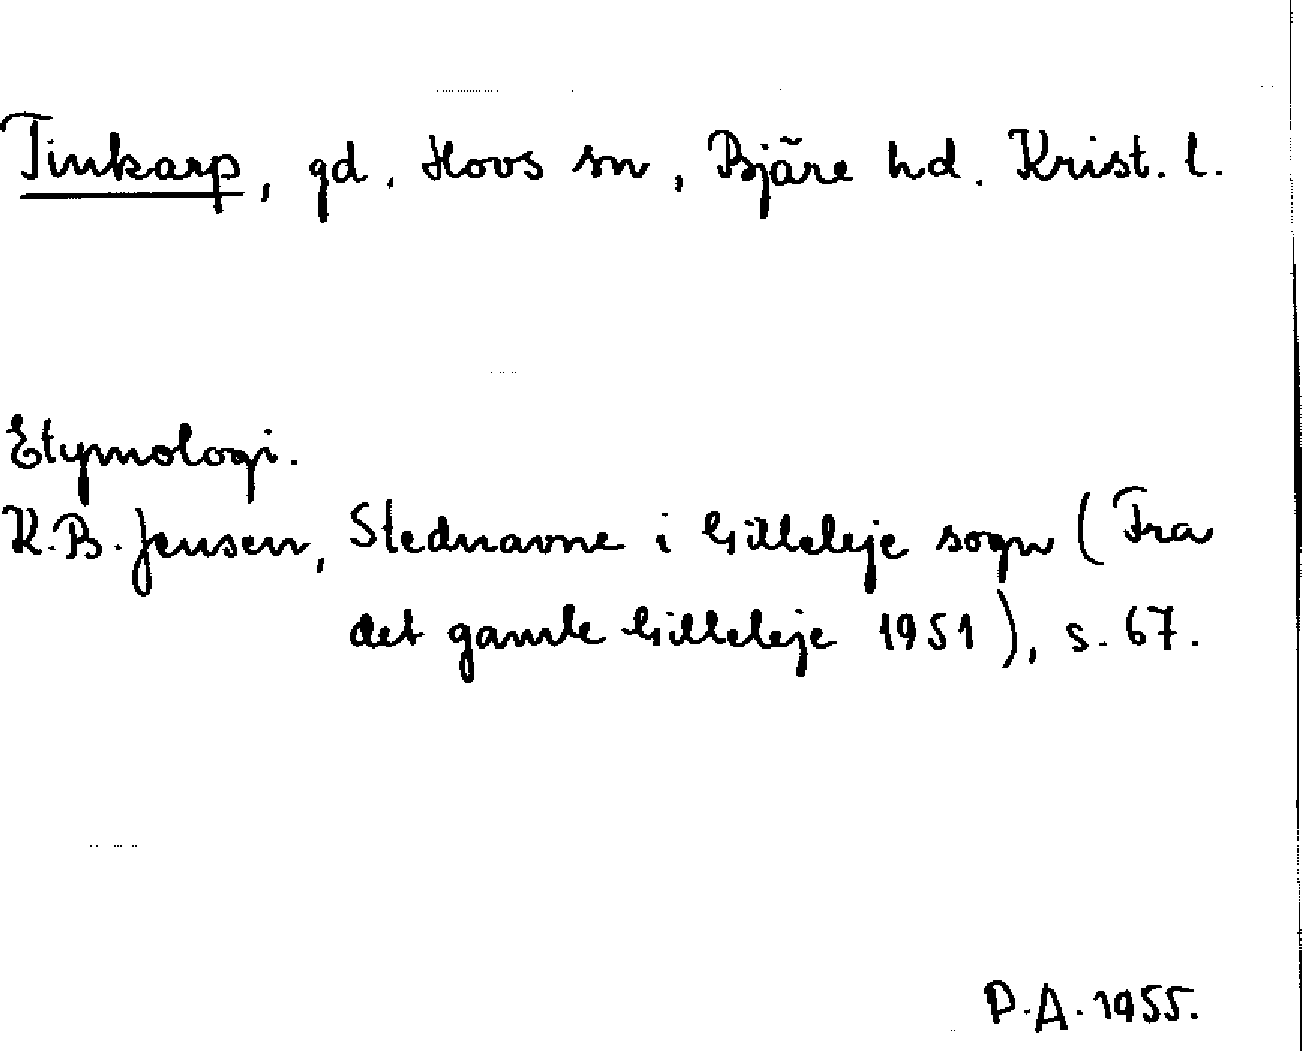 Tinkarp, gd, Hovs sn, Bjäre hd. Krist. l.
Etymologi.
K.B. Jensen, Stednavne i Gilleleje sogn (Fra
det gamle Gilleleje 1951), s. 67.
P.A. 1955.